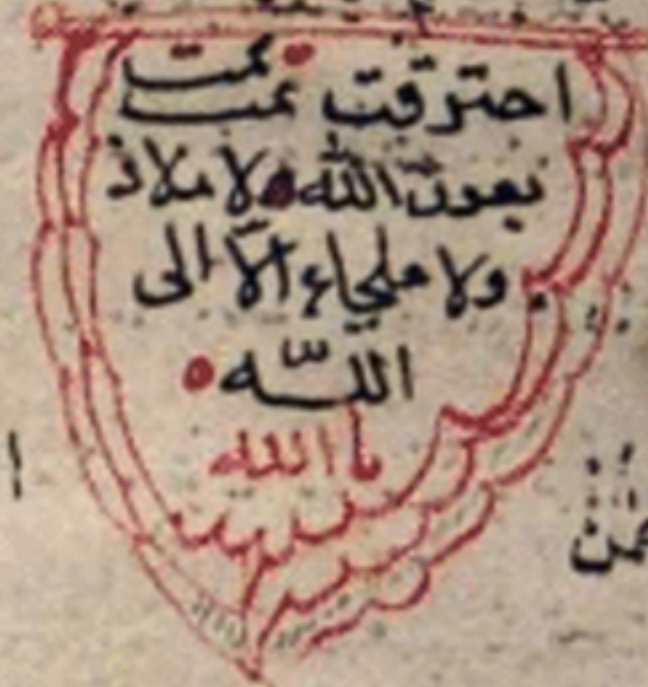 احترقت تمت تمت
بعون الله لا ملاذ
ولا ملجاء الّا الى
اللّه
يا الله